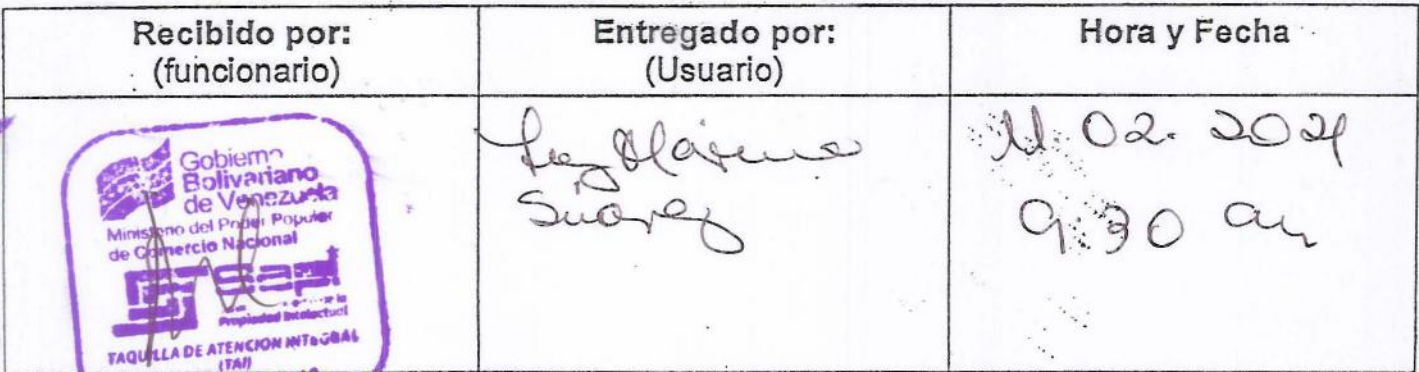 Recibido por:
(funcionario)
Entregado por:
(Usuario)
Hora y Fecha
Gobierno
Bolivariano
de Venezuela
Ministerio del Poder Popular
de Comercio Nacional
sapi
Propiedad Intelectual
TAQUILLA DE ATENCION INTEGRAL
(TAI)
Suárez
02. 2021
9:30 am